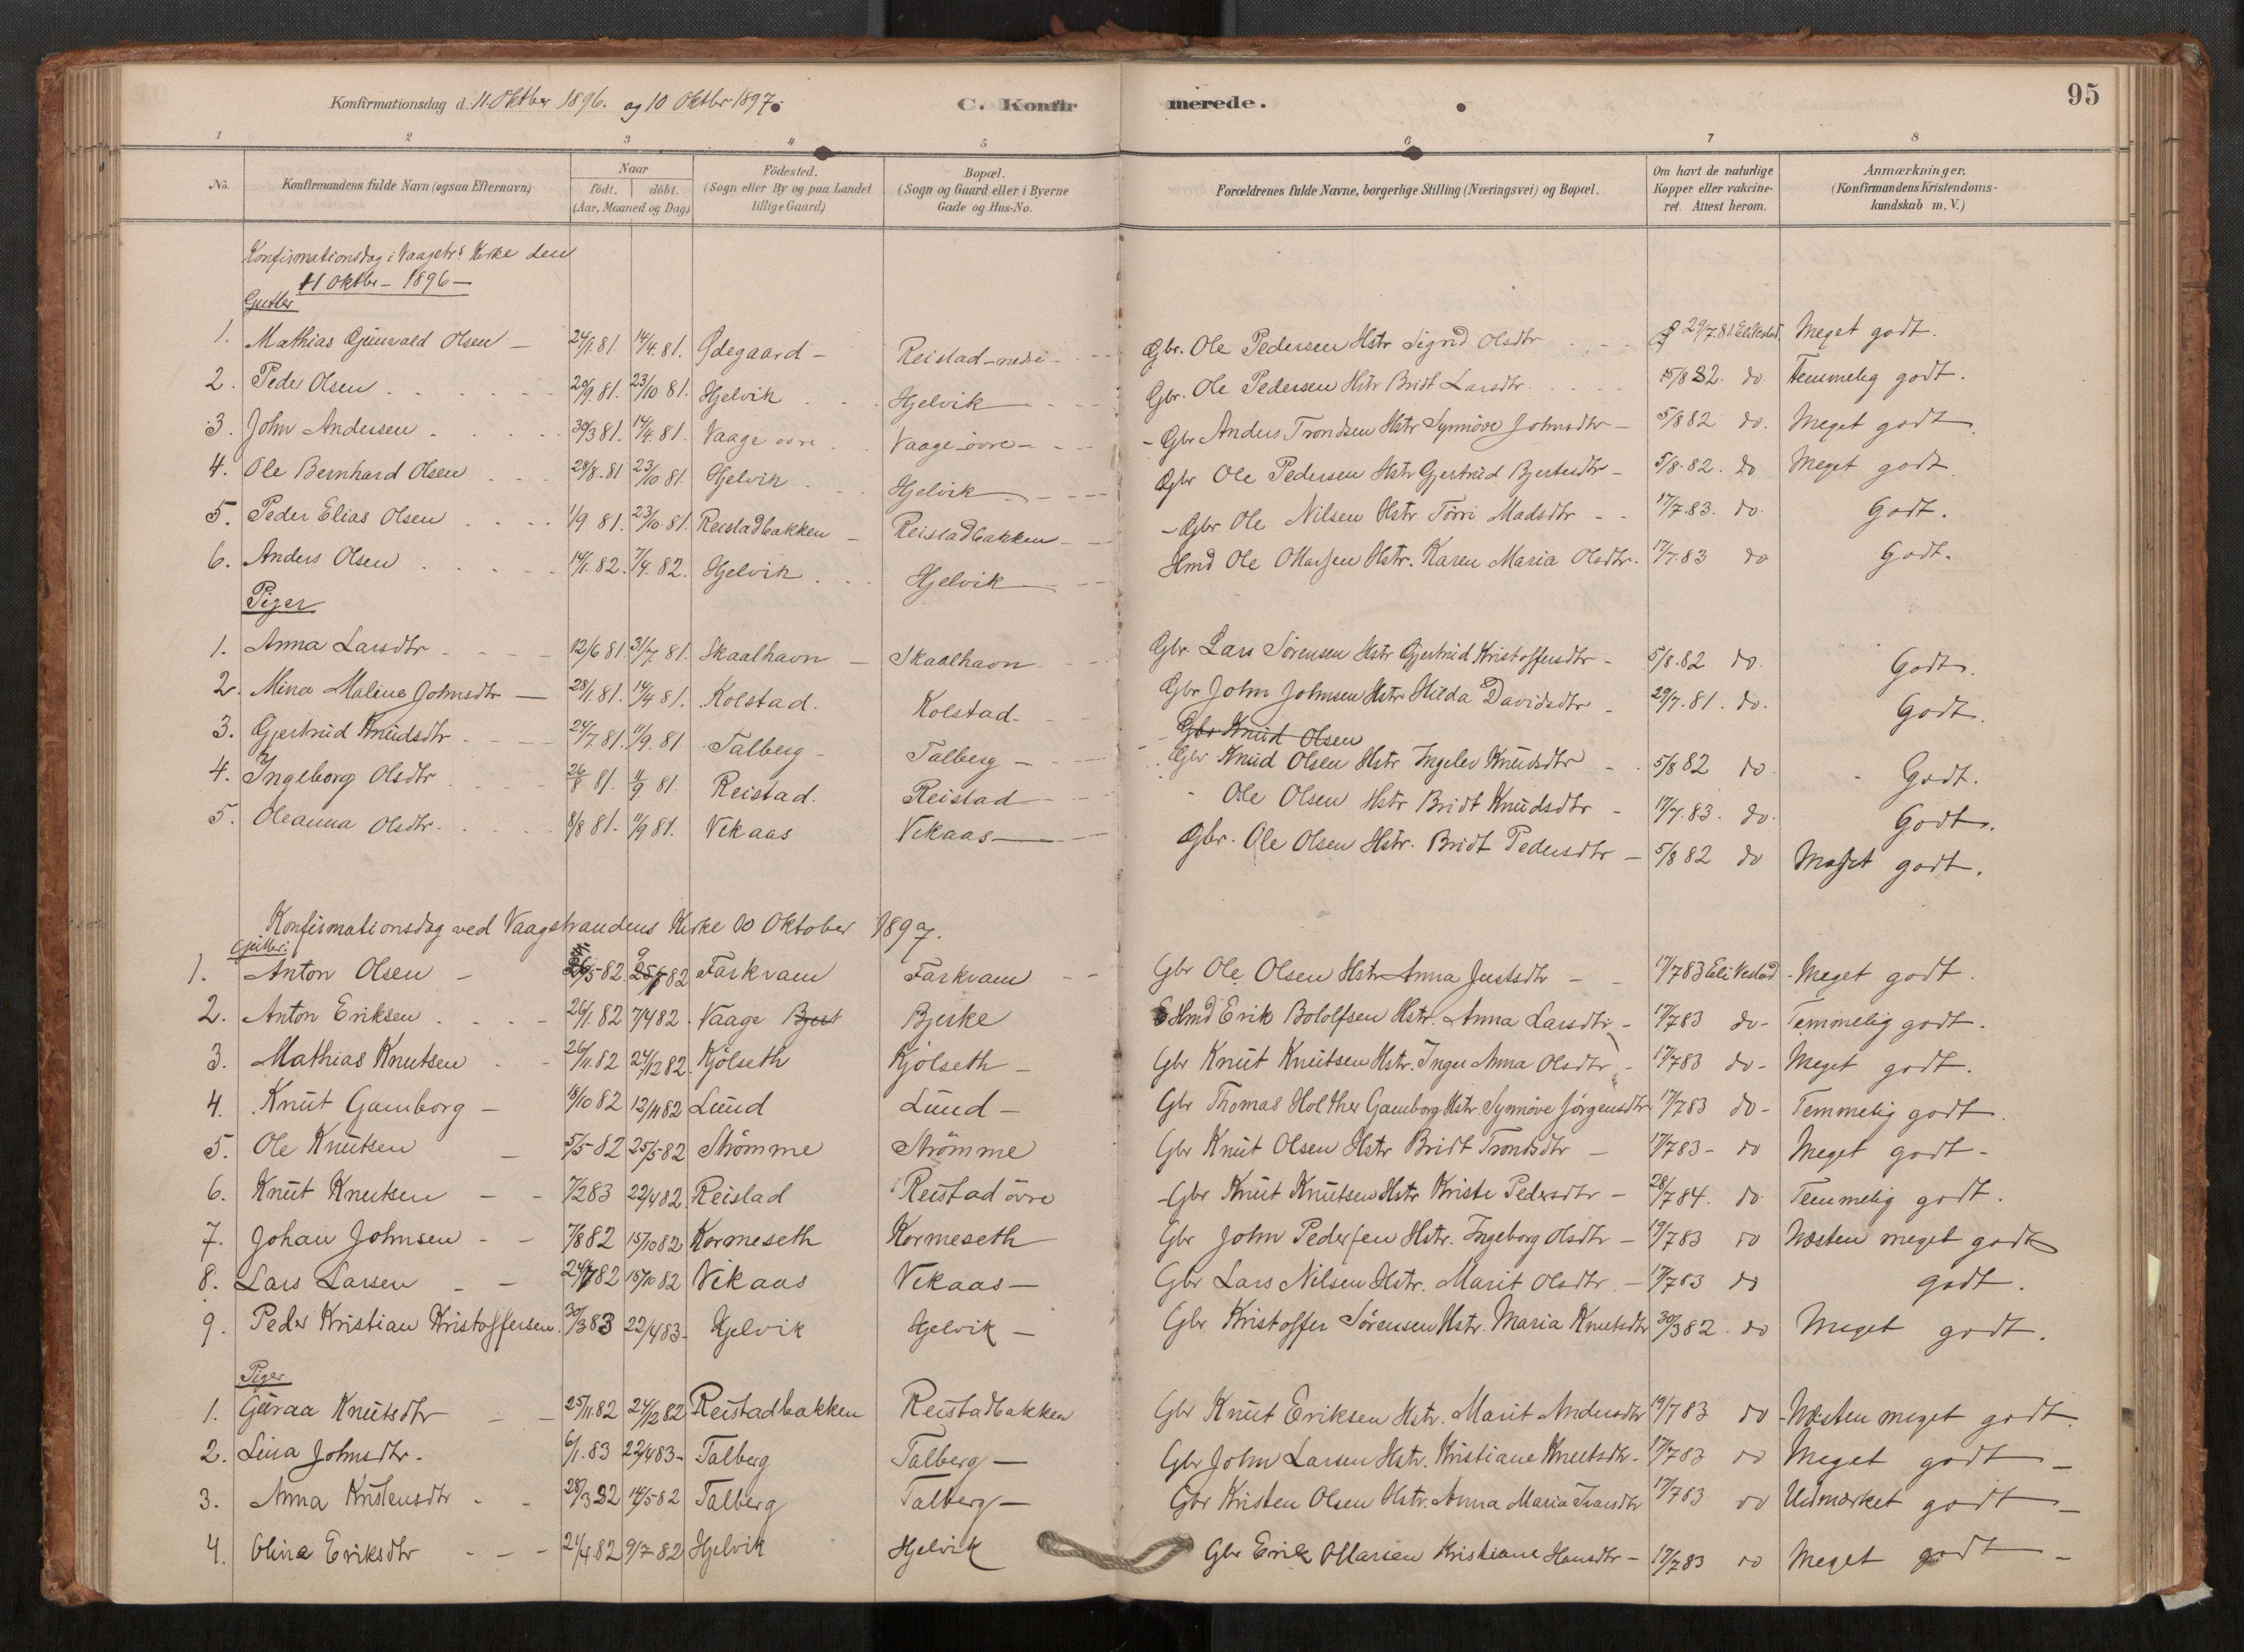 Konfirmationsdag d. 11. Oktber 1896. og 10 Oktbr 1897.
C. Konfirmerede.
95
1 2 3 4 5 6 7 8
No.
Konfirmandens fulde Navn (ogsaa Efternavn)
Naar
födt. döbt.
(Aar, Maaned og Dag)
Födested.
(Sogn eller By og paa Landet
tillige Gaard)
Bopæl.
(Sogn og Gaard eller i Byerne
Gade og Hus-No.
Forældrenes fulde Navne, borgerlige Stilling (Næringsvei) og Bopæl.
Om havt de naturlige
Kopper eller vakcine-
ret. Attest herom.
Anmærkninger,
(Konfirmandens Kristendoms-
kundskab m. V.)
Konfirmationsdag i Vaagstr.s Kirke den
11 Oktbr - 1896 -
Gutter
1. Mathias Gunvald Olsen - 24/1.81. 14/4.81. Ödegaard - Reistad-nedre - Gbr. Ole Pedersen Hstr Sigrid Olsdtr 29/7.81 Eli Vestad. Meget godt.
2. Peder Olsen 20/9.81. 23/10 81. Hjelvik Hjelvik Gbr. Ole Pedersen Hstr Bridt Larsdtr. 5/8 82. do. Temmelig godt.
3. John Andersen 30/3 81. 14/4.81. Vaage övre Vaage-övre - Gbr Anders Trondsen Hstr Synnöve Johnsdtr - 5/8 82 do. Meget godt.
4. Ole Bernhard Olsen 28/8.81 23/10 81. Hjelvik Hjelvik Gbr Ole Pedersen Hstr Gjertrud - 5/8.82. do Meget godt
5. Peder Elias Olsen 1/9 81. 23/10.81. Reistadbakken - Reistadbakken - Gbr Ole Nilsen Hstr Törri Madsdtr - 17/7.83. do. Godt.
6. Anders Olsen 14/1.82. 7/4.82. Hjelvik Hjelvik Hmd Ole Hstr. Karen Maria Olsdtr. 17/7.83 do Godt.
Piger
1. Anna Larsdtr 12/6 81. 31/7 81. Skaalhavn - Skaalhavn Gbr. Lars Sörensen Hstr Gjertrud Kristoffersdtr - 5/8.82 do. Godt.
2. Mina Malina Johnsdtr - 28/1.81. 14/4 81. Kolstad. Kolstad. Gbr John Johnsen Hstr Hilda Davidsdtr - 29/7.81. do. Godt.
Gbr Knud Olsen
3. Gjertrud Knudsdtr 24/7 81. 11/9.81 Talberg - Talberg - Gbr Knud Olsen Hstr Ingelev Knudsdtr - 5/8 82 do. Godt.
4. Ingeborg Olsdtr 26/8 81. 11/9 81. Reistad. Reistad Ole Olsen Hstr Bridt Knudsdtr - 17/7.83. do. Godt.
5. Oleanna Olsdtr. 8/8 81. 11/9 81. Vikaas Vikaas Gbr. Ole Olsen Hstr. Bridt Pedersdtr - 5/8 82 do Meget godt.
Konfirmationsdag ved Vaagstrandens Kirke 10 Oktober 1897.
Gutter:
1. Anton Olsen - 5-82. 82 Farkvam Farkvam Gbr Ole Olsen Hstr Anna Justsdtr - 17/7 83 Eli Vestad - Meget godt.
2. Anton Eriksen 26/1.82 7/4 82. Vaage Bjerke Hmd Erik Bololfsen Hstr. Anna Larsdtr - 17/7 83 do - Temmelig godt.
3. Mathias Knutsen 26/11.82 24/12 82. Kjölseth Kjölseth - Gbr Knut Knutsen Hstr. Inger Anna Olsdtr - 17/7 83 do - Meget godt.
4. Knut Gamborg - 18/10 82 12/11 82 Lund Lund - Gbr Thomas Holther Gamborg Hstr. Synnöve Jörgensdtr 17/7 83 do - Temmelig godt.
5. Ole Knutsen - 5/5-82 25/5-82 Strömme Strömme Gbr Knut Olsen Hstr Bridt Trondsdtr - 17/7 83 - do Meget godt -
6. Knut Knutsen - - 7/2 83 22/4 82. Reistad Reistad övre - Gbr Knut Knutsen Hstr Kristi Pedersdtr - 28/7 84. do. Temmelig godt.
7. Johan Johnsen - - 7/8 82 15/10 82 Kormeseth Kormeseth Gbr John Pedersen Hstr. Ingeborg Olsdtr - 19/7 83 do Næsten meget godt
8. Lars Larsen - - 24/7 82 15/10 82 Vikaas Vikaas - Gbr Lars Nilsen Hstr. Marit Olsdtr - 17/7 83 do godt.
9. Peder Kristian Kristoffersen. 30/3 83 22/4 83 - Hjelvik Hjelvik - Gbr. Kristoffer Sörensen Hstr. Maria Knutsdtr 30/3 82. do Meget godt.
Piger
1. Guraa Knutsdtr - - 25/11.82 24/12 82 Reistadbakken Reistadbakken Gbr Knut Eriksen Hstr. Marit Andersdtr 19/7 83 do - Næsten meget godt.
2. Lina Johnsdtr. 6/1.83 22/4 83 - Talberg Talberg - Gbr John Larsen Hstr. Kristiane Knutsdtr - 17/7 83 do Meget godt -
3. Anna Kristensdtr - - 28/3 82 14/5 82 Talberg Talberg - Gbr Kristen Olsen Hstr. Anna Maria 17/7 83 do Udmærket godt -
4. Olina Eriksdtr - - - 21/4 82 9/7 82 Hjelvik Hjelvik Gbr Erik Kristiane Hansdtr - 17/7 83 do Meget godt -